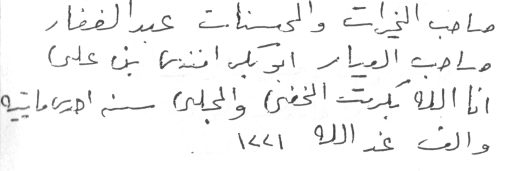 صاحب الخيرات والحسنات عبد الغفار
صاحب العيار ابو بكر افندي بن علي
انا الله بكرت الخفي والجلي سنه احدى مايتيه
والف غذ الله ١٢٢١